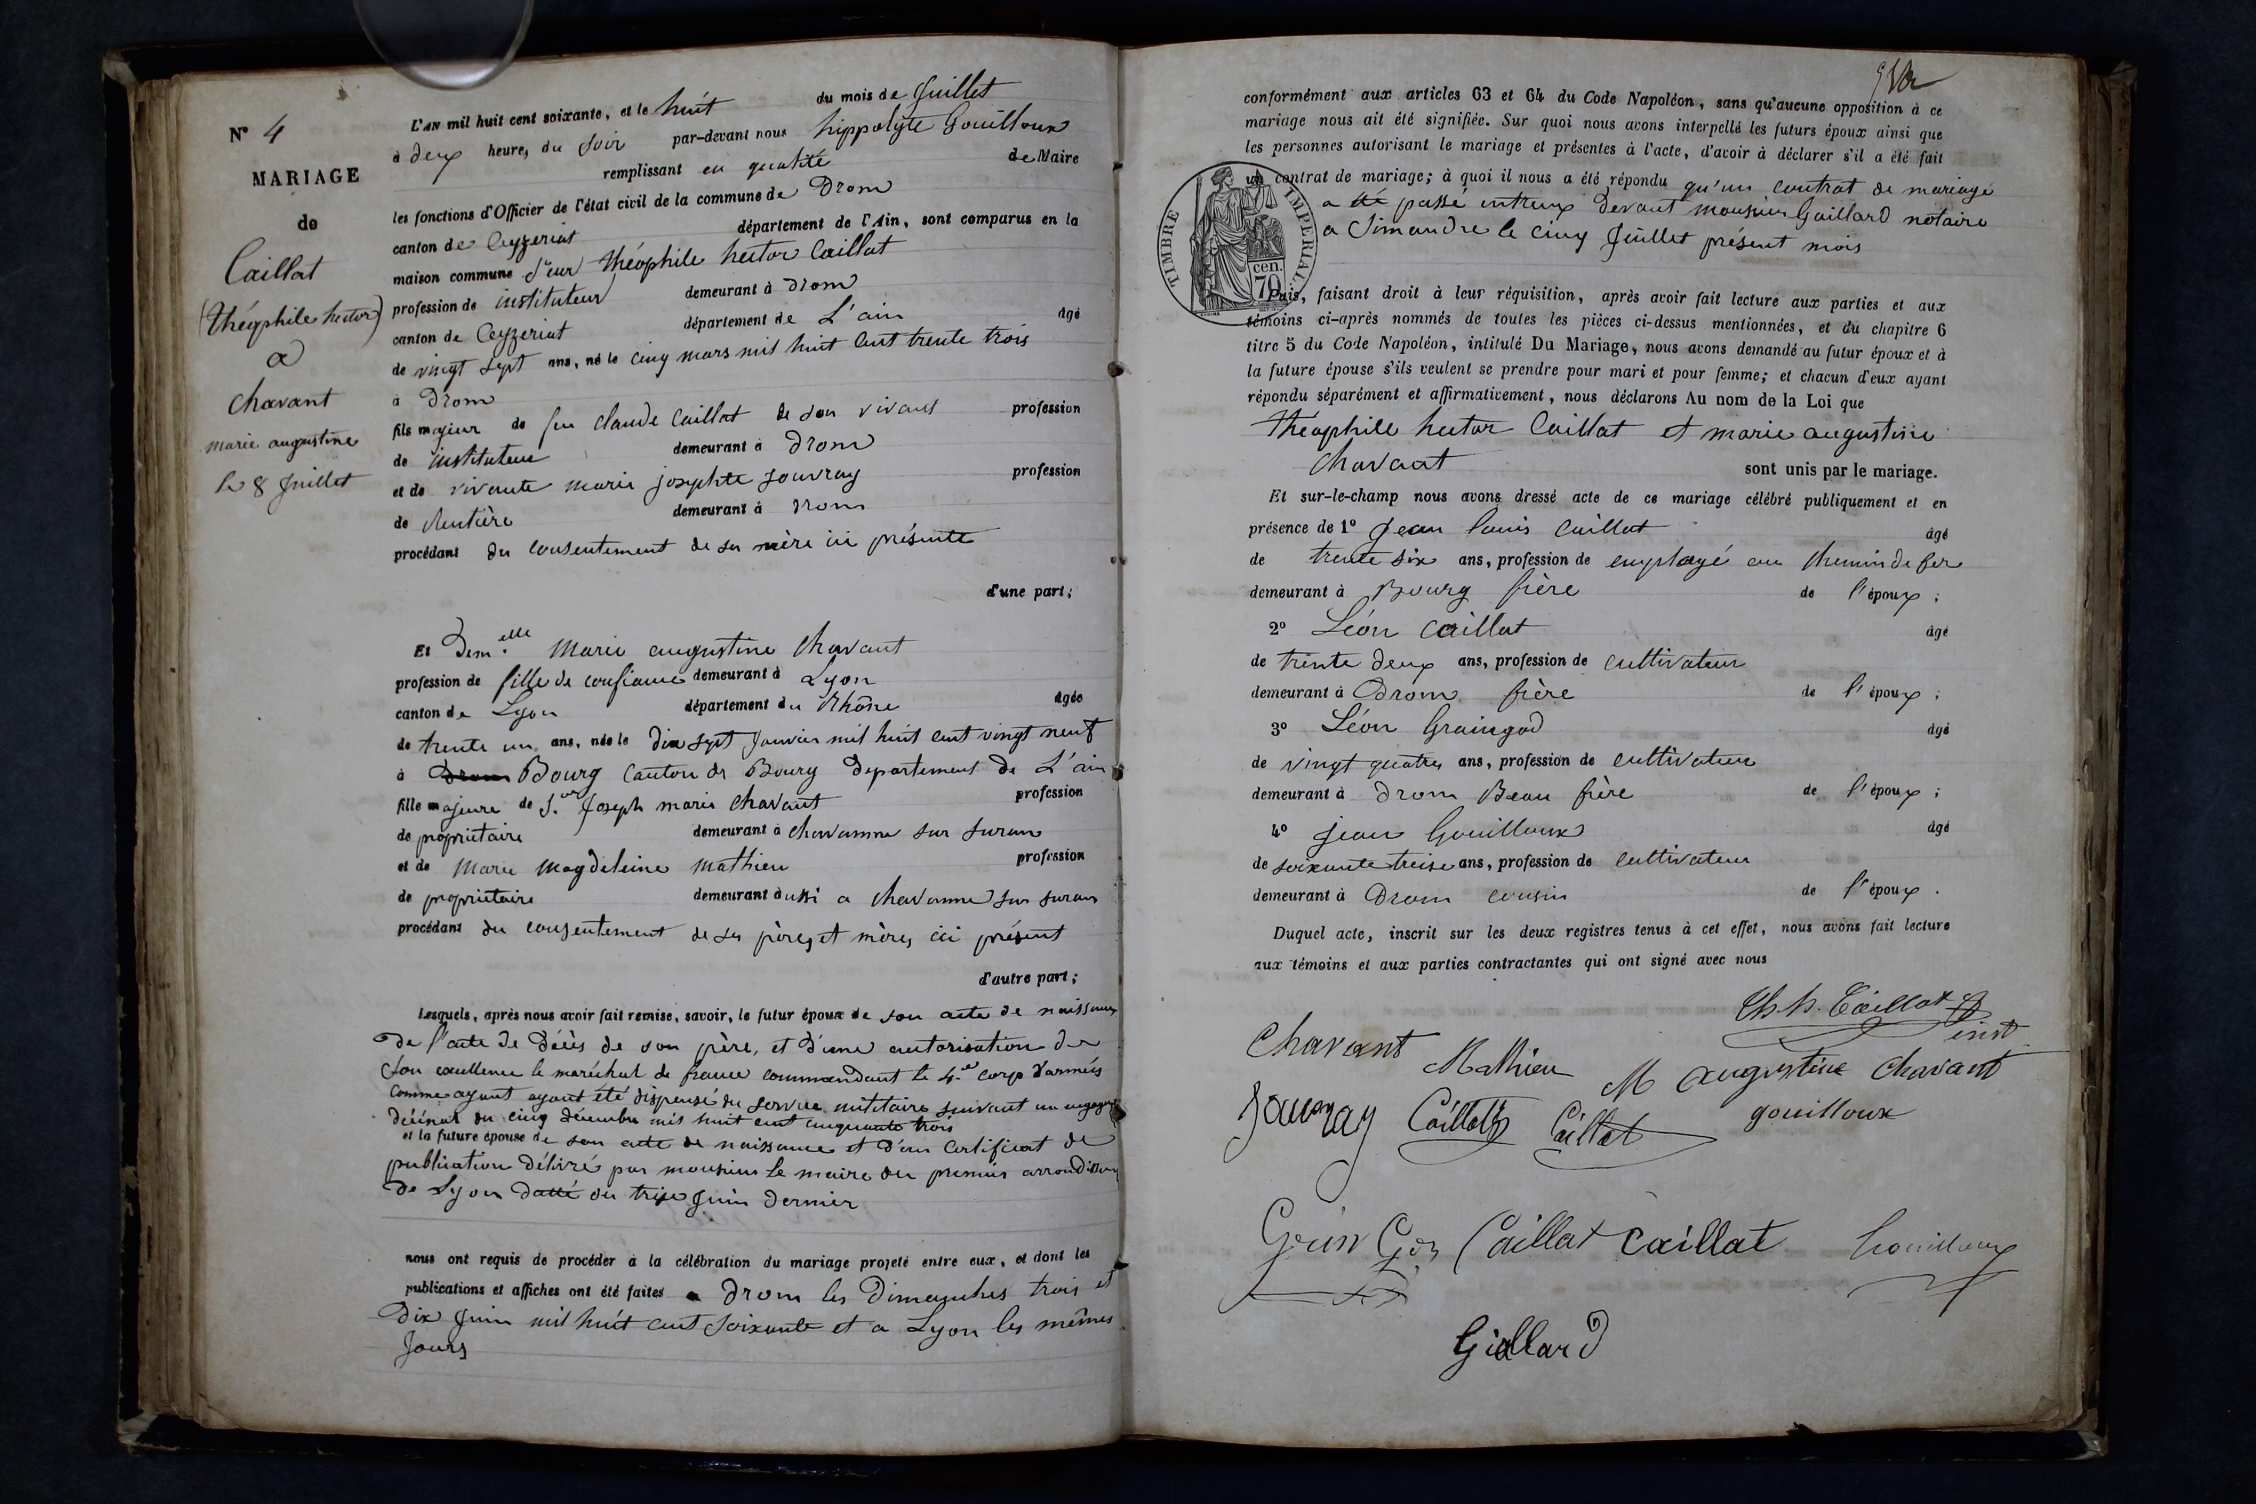 N° 4
MARIAGE
de
Caillat
(théophile hector)
a
Chavant
marie augustine
le 8 Juillet
L'AN mil huit cent soixante, et le huit du mois de Juillet
à deux heure, du soir par-devant nous hippolyte Gouilloux
remplissant en qualité de Maire
les fonctions d'Officier de l'état civil de la commune de Drom
canton de Ceyzeriat département de l'Ain, sont comparus en la
maison commune Sieur théophile hector Caillat
profession de instituteur demeurant à Drom
canton de Ceyzeriat département de L'ain âgé
de vingt sept ans, né le cinq mars mil huit cent trente trois
à Drom
fils majeur de feu claude Caillat de son vivant profession
de instituteur demeurant à Drom
et de vivante marie josephte Jouvray profession
de Rentière demeurant à Drom
procédant du consentement de sa mère ici présente
d'une part;
Et Dem.elle Marie augustine Chavant
profession de fille de confiance demeurant à Lyon
canton de Lyon département du Rhône âgée
de trente un ans, née le dix sept Janvier mil huit cent vingt neuf
à Drom Bourg Canton de Bourg département de L'ain
fille majeure de S.eur Joseph marie Chavant profession
de propriétaire demeurant à Chavanne sur suran
et de Marie Magdeleine Mathieu profession
de propriétaire demeurant aussi a Chavanne sur suran
procédant du consentement de ses pères et mères ici présent
d'autre part;
Lesquels, après nous avoir fait remise, savoir, le futur époux de son acte de naissance
De l'acte de Décès de son père, et d'une autorisation de
Son excellence le maréchal de france commandant le 4e corp d'armées
Comme ayant ayant été dispensé du service militaire suivant un
décénal du cinq décembre mil huit cent cinquante trois
et la future épouse de son acte de naissance et d'un Certificat de
publication délivré par monsieur le maire du premier
de Lyon datté du trise Juin dernier
nous ont requis de procéder à la célébration du mariage projeté entre eux, et dont les
publications et affiches ont été faites a Drom les Dimanches trois et
Dix Juin mil huit cent soixante et a Lyon les mêmes
Jours
conformément aux articles 63 et 64 du Code Napoléon, sans qu'aucune opposition à ce
mariage nous ait été signifiée. Sur quoi nous avons interpellé les futurs époux ainsi que
les personnes autorisant le mariage et présentes à l'acte, d'avoir à déclarer s'il a été fait
un contrat de mariage; à quoi il nous a été répondu qu'un contrat de mariage
a été passé entreux devant monsieur Gaillard notaire
a Simandre le cinq Juillet présent mois
TIMBRE IMPERIAL
70 cen.
Puis, faisant droit à leur réquisition, après avoir fait lecture aux parties et aux
témoins ci-après nommés de toutes les pièces ci-dessus mentionnées, et du chapitre 6
titre 5 du Code Napoléon, intitulé Du Mariage, nous avons demandé au futur époux et à
la future épouse s'ils veulent se prendre pour mari et pour femme; et chacun d'eux ayant
répondu séparément et affirmativement, nous déclarons Au nom de la Loi que
théophile hector Caillat et marie augustine
Chavant sont unis par le mariage.
Et sur-le-champ nous avons dressé acte de ce mariage célébré publiquement et en
présence de 1° Jean Louis Caillat âgé
de trente six ans, profession de employé au Chemin de fer
demeurant à Bourg frère de l'époux;
2° Léon Caillat âgé
de trente deux ans, profession de cultivateur
demeurant à Drom frère de l'époux;
3° Léon Graingod âgé
de vingt quatre ans, profession de cultivateur
demeurant à Drom Beau frère de l'époux;
4° jean Gouilloux âgé
de soixante treise ans, profession de cultivateur
demeurant à Drom cousin de l'époux.
Duquel acte, inscrit sur les deux registres tenus à cet effet, nous avons fait lecture
aux témoins et aux parties contractantes qui ont signé avec nous
Th. h. Caillat
inst
Chavant Mathieu M augustine Chavant
Jouvray Caillat Caillat gouilloux
Caillat Caillat Gouilloux